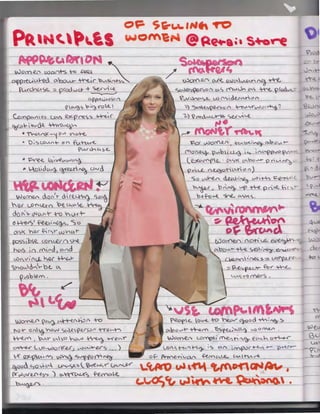 PRINCIPLES OF SELLING TO WOMEN @ Retail Store
APPRECIATION
Women wants to feel
appreciated about their Business
Purchase = product + service
appreciation
plays big role!
Companies can express their
gratitude through
• Thank-you note
• Discount on future
Purchase
• Free
• Holiday greeting card
HER CONCERN
Women don't directly say
her concern because they
don't want to hurt
others' feelings. So
ask her first what
possible concern she
has in mind, and
her
shouldn't be a
problem.
BE NICE
Women pay attention to
not only how salesperson treats
them, but also how they treat
other (co-worker, ...)
or explain why supporting
good social cause (Breast Cancer
Awareness) attracts female
buyers
Salesperson matters
Women are evaluating the
salesperson as much as the product
Purchase consideration
1) Salesperson trustworthy?
2) Product + Service
NO MONEY TALK
For women, talking about
money publicly is inappropriate
(Example: ask about pricing,
price negotiation)
So when dealing with female
buyer, bring up the price first
before she asks.
Environment = Reflection of Brand
Women notice everything
about the selling environment
Cleanliness =
= Respect for the
customers.
USE COMPLIMENTS
People love to hear good things
about them. Especially women
Women complimenting each other
constantly is an important part
of American female culture
LEAD with EMOTIONAL,
CLOSE with the Rational.